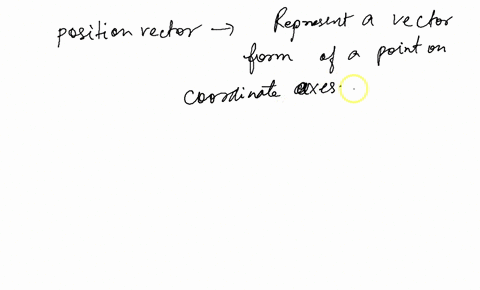 position vector → Represent a vector
form of a point on
coordinate axes.